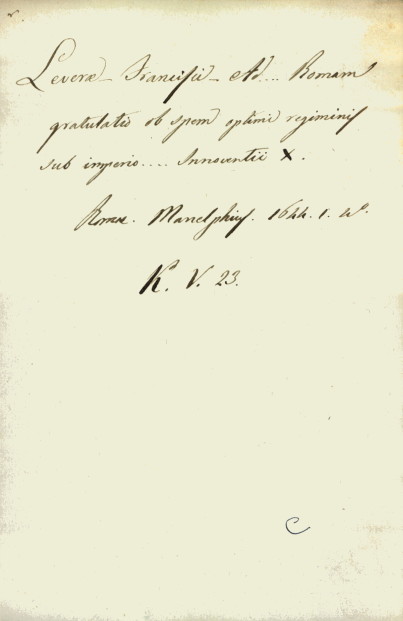 Leveræ – Francisci – Ad.... Romam
gratulatio ob spem optimi regiminis
sub imperio.... Innocentii X.
Romæ. Manelphius. 1644. 1. 4º.
K. V. 23.
C